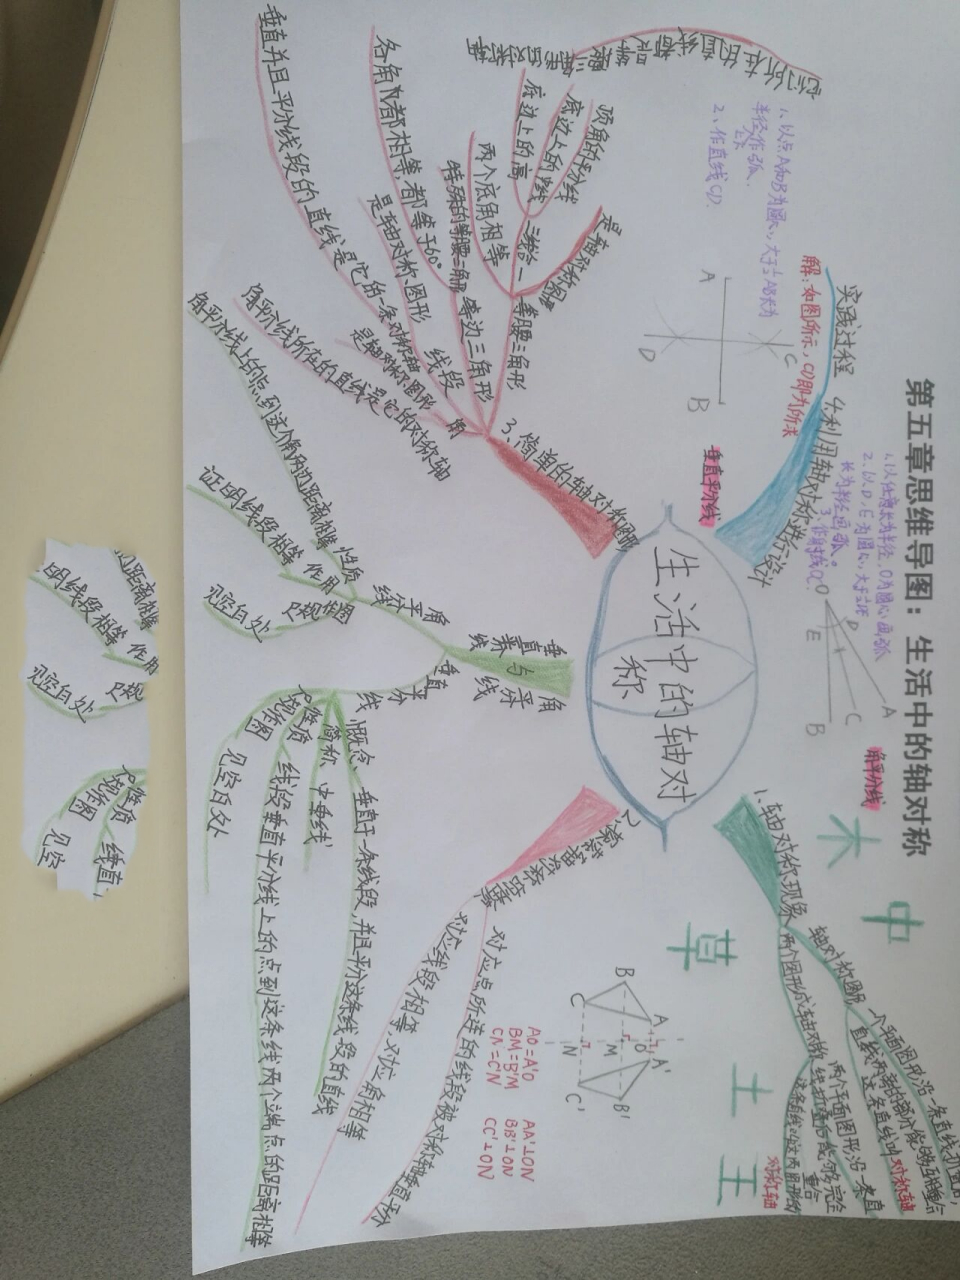 第五章思维导图：生活中的轴对称
生活中的轴对称
1、轴对称现象
轴对称图形
一个平面图形沿一条直线折叠后，
直线两旁的部分能够互相重合
这条直线叫对称轴
两个图形成轴对称
两个平面图形沿一条直
线折叠后能够完全
重合
对称轴
中
木
草
土
王
对应点所连的线段被对称轴垂直平分
对应线段相等 对应角相等
B
A
C
O
M
N
A'
B'
C'
AO=A'O
BM=B'M
CN=C'N
AA'⊥ON
BB'⊥ON
CC'⊥ON
3、简单的轴对称图形
等腰三角形
三线合一
顶角的平分线
底边上的中线
底边上的高
两个底角相等
等边三角形
特殊的等腰三角形
各角都相等，都等于60°
是轴对称图形
线段
垂直并且平分线段的直线是它的一条对称轴
角
是轴对称图形
角平分线所在的直线是它的对称轴
角平分线
性质
角平分线上的点到这个角两边距离相等
作用
证明线段相等
尺规作图
见空白处
垂直平分线
概念
垂直于一条线段，并且平分这条线段的直线
简称
中垂线
性质
线段垂直平分线上的点到这条线两个端点的距离相等
尺规作图
见空白处
4、利用轴对称进行设计
实践过程
解：如图所示，CD即为所求
1、以点A和B为圆心，大于½AB长为
半径作弧。
2、作直线CD.
A
B
C
D
垂直平分线
1、以任意长为半径，O为圆心画弧
2、以D，E为圆心，大于½DE
长为半径画弧。
3、作射线OC.
O
D
E
A
C
B
角平分线
距离相等
明线段相等
作用
尺规
见空白处
性质
线垂直
作图
见空